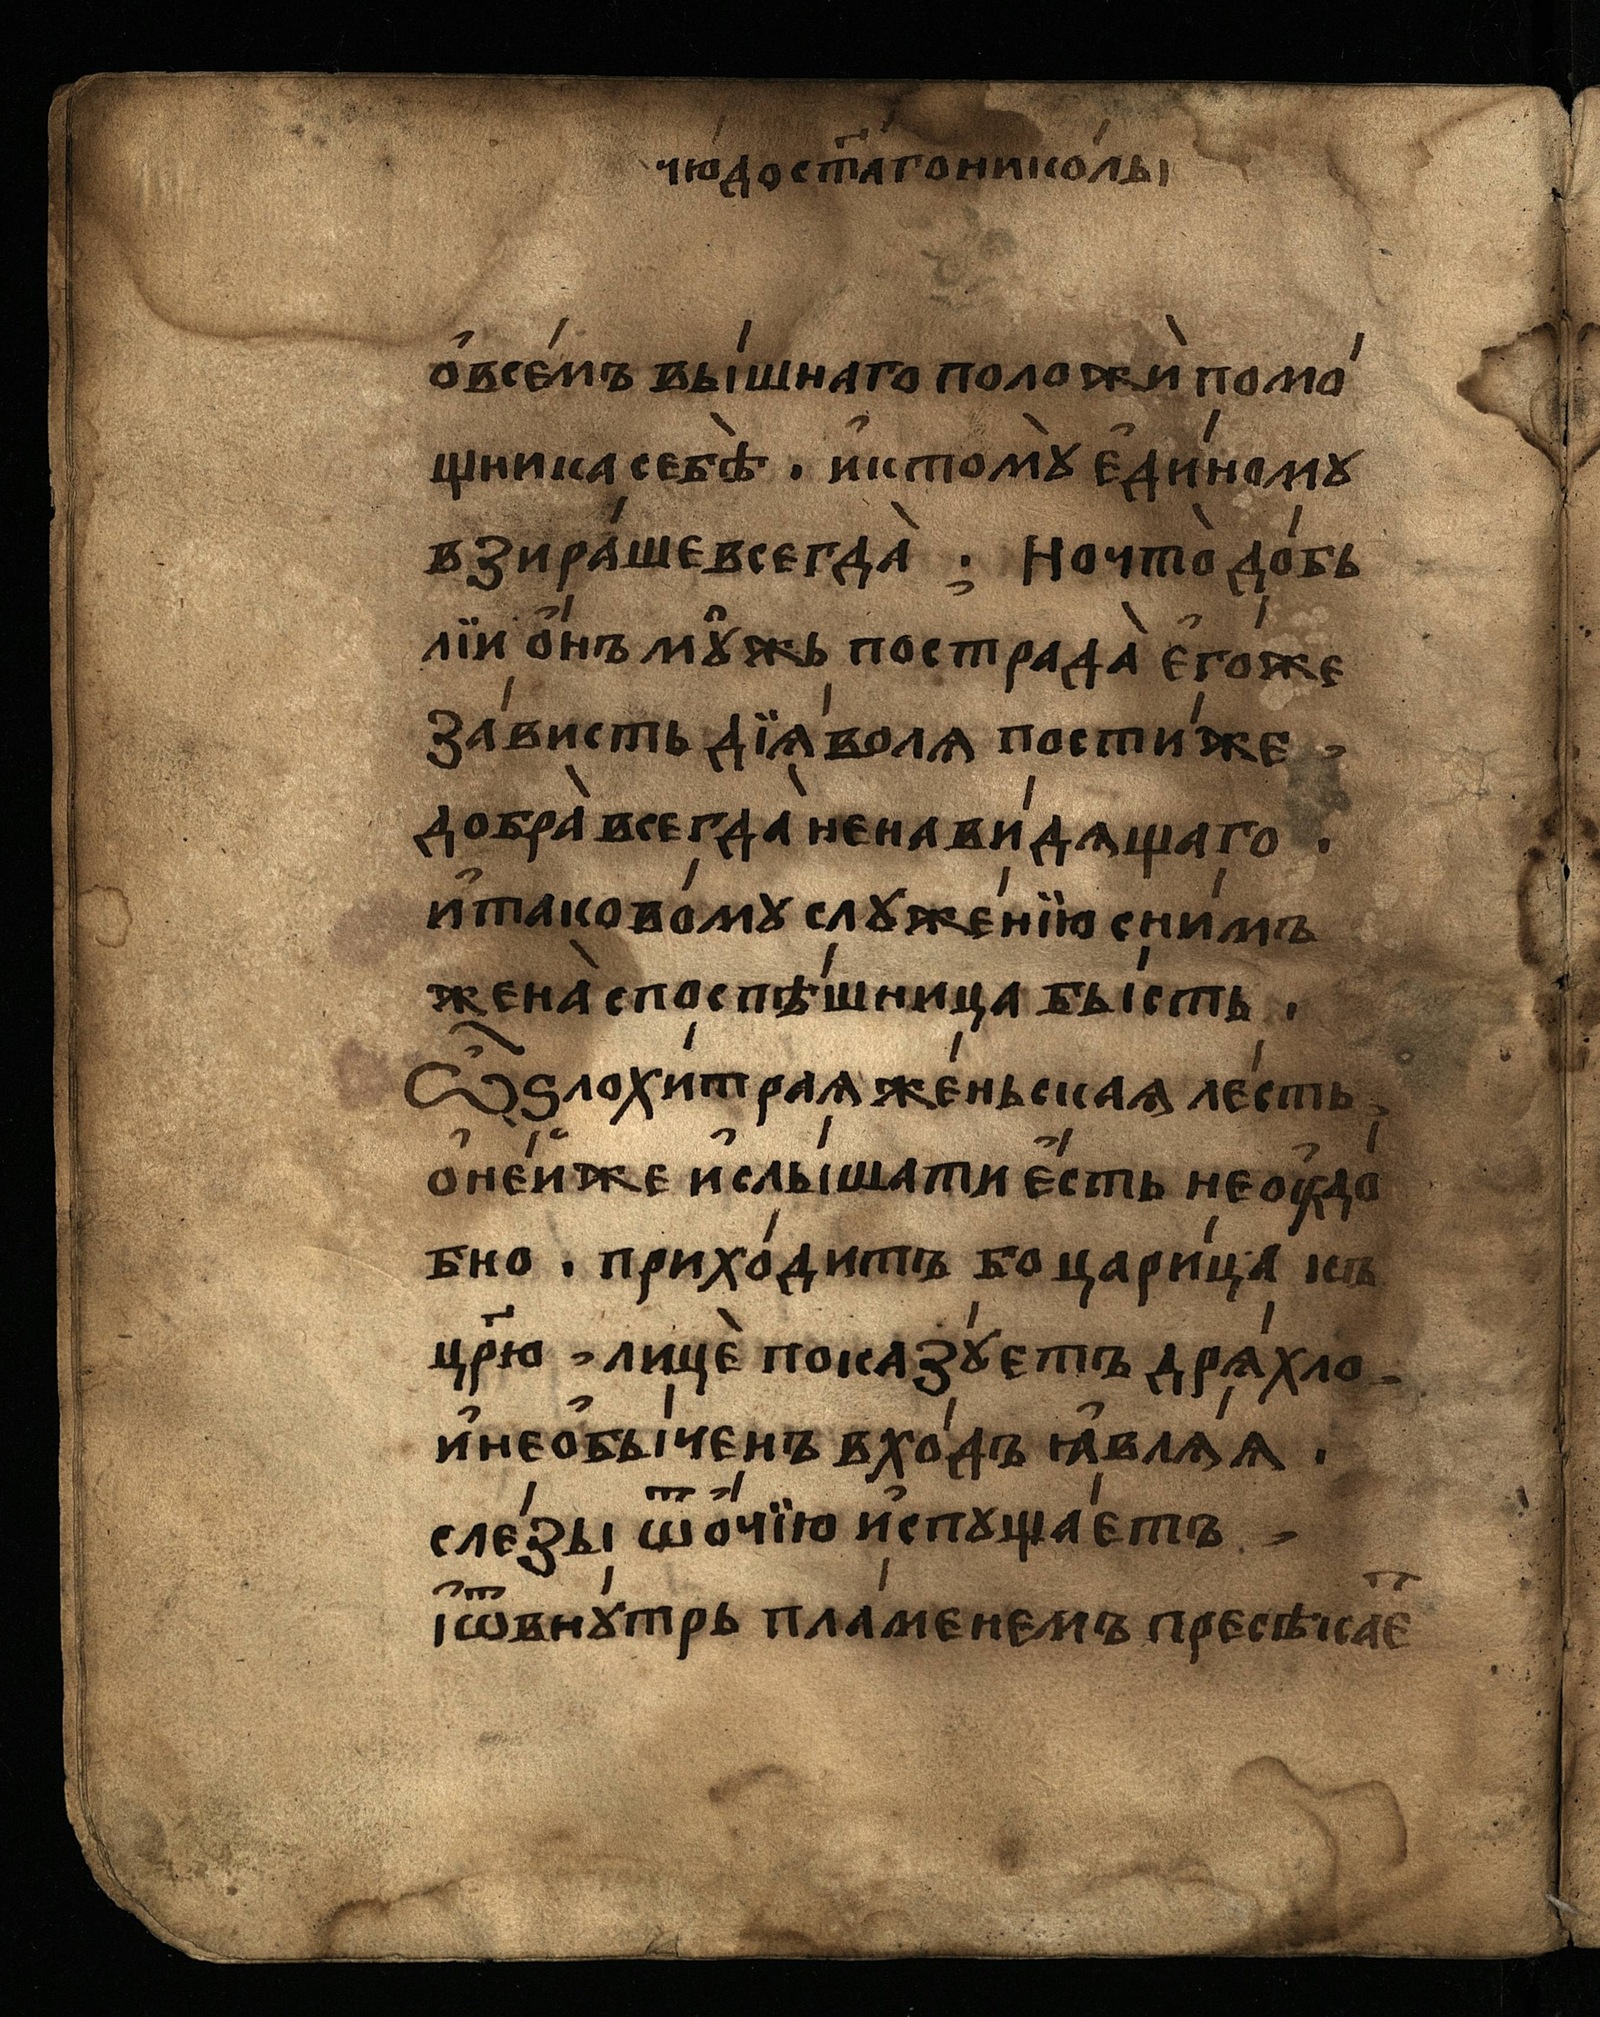 чю́дост҃а́гонико́лы
о҆всéмъ вы́шнаго положѝ помо́
щника себѣ̀ . и҆ктомꙋ̀ є҆ди́номꙋ
взира́шевсегда̀ ; Ночто̀ до́бь
лїи о҆́нъ мꙋ̑жь пострада̀ є҆го́же
за́висть дїѧ́волѧ пости́же ,
добра̀ всегда̀ ненави́дѧщаго .
и҆таково́мꙋ слꙋже́нїю сни́мъ
жена̀ споспѣ́шница бы́сть .
Ѽ ѕлохи́траѧ же́ньскаѧ ле́сть ,
о҆не́йже и҆слы́шати є҆́сть неоу҆до́
бно . прихо́дитъ бо цари́ца къ
цр҃ю , лицѐ показꙋ́етъ дрѧ́хло ,
и҆нео҆бы́ченъ вхо́дъ ꙗ҆влѧ́ѧ .
сле́зы ѿ о҆́чїю и҆спꙋща́етъ ,
і҆ѿвнꙋ́трь пла́менемъ пресѣкае҃